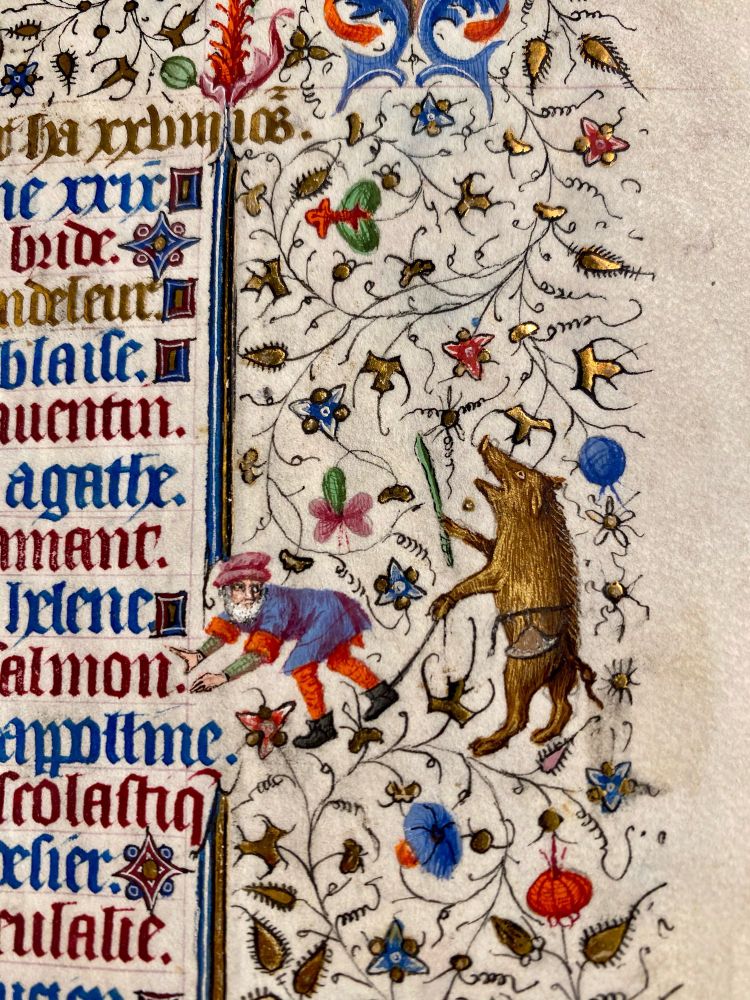 ha xxviii
ne xxix
bride.
ndeleur.
blaise.
auentin.
agathe.
amant.
helene.
salmon.
appolline.
scolastiq
esier.
eulalie.